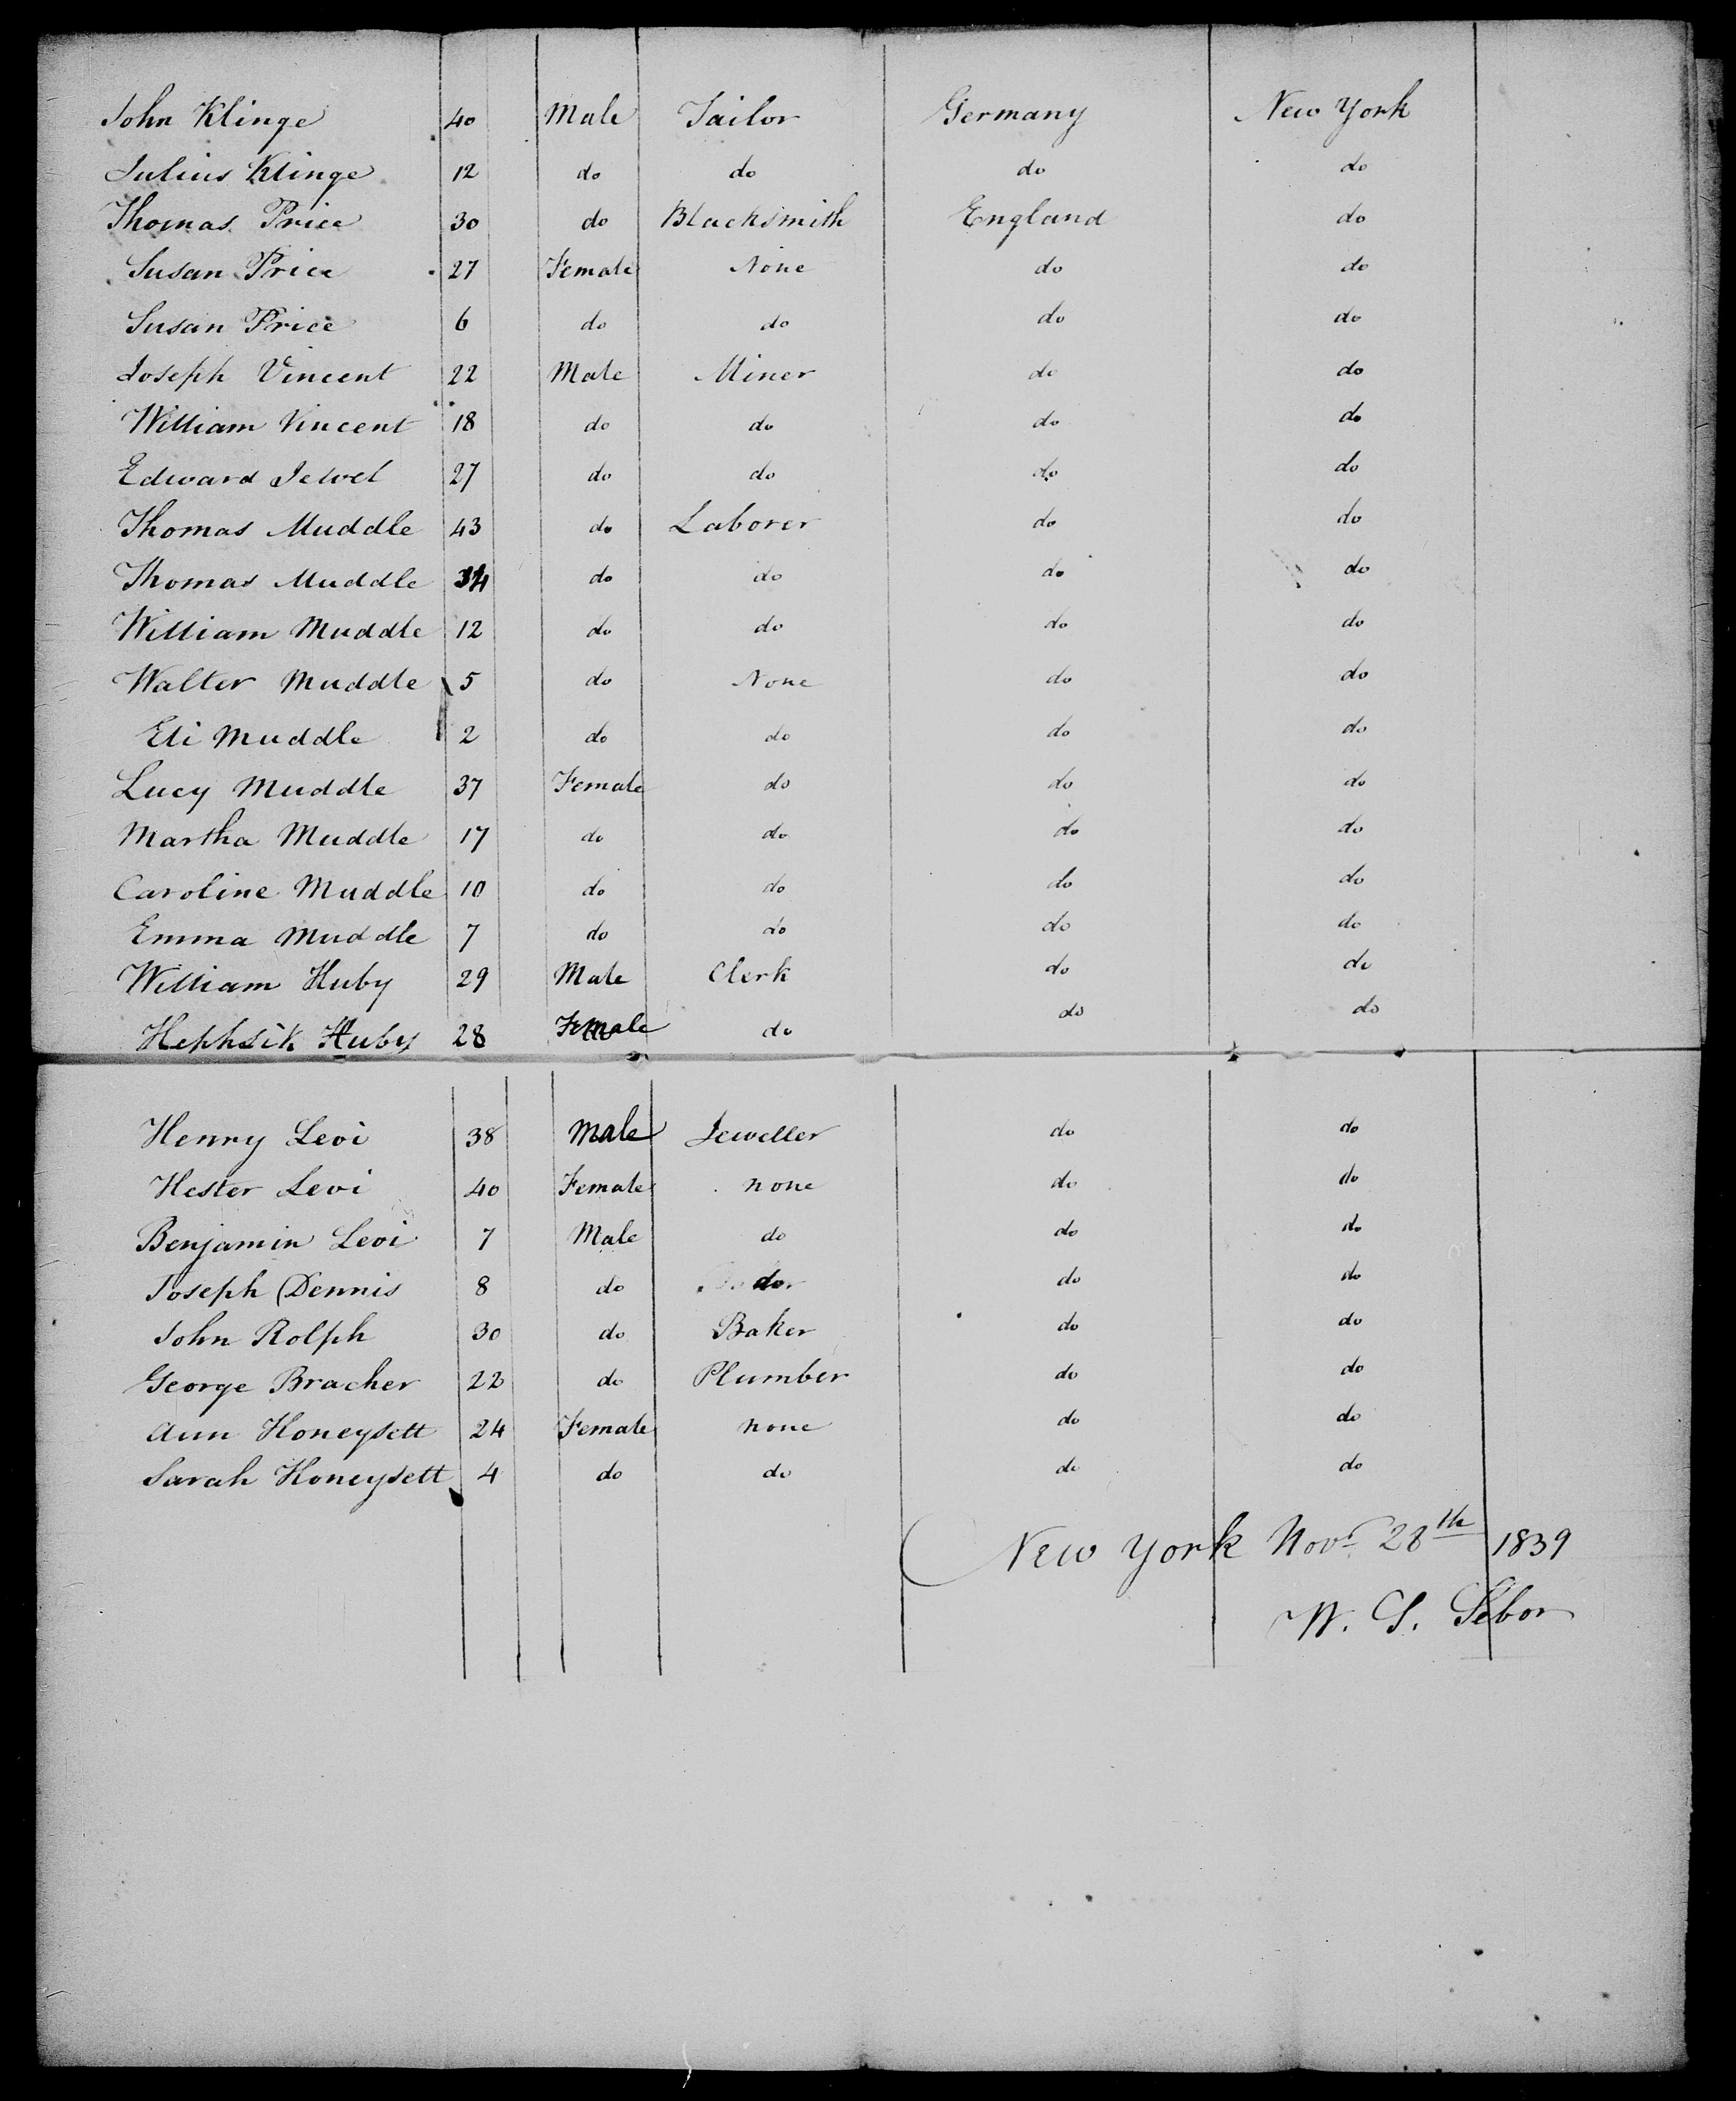 John Klinge 40 Male Tailor Germany New York
Julius Klinge 12 do do do do
Thomas Price 30 do Blacksmith England do
Susan Price 27 Female None do do
Susan Price 6 do do do do
Joseph Vincent 22 Male Miner do do
William Vincent 18 do do do do
Edward Jewel 27 do do do do
Thomas Muddle 43 do Laborer do do
Thomas Muddle do do do do
William Muddle 12 do do do do
Walter Muddle 5 do None do do
Eli Muddle 2 do do do do
Lucy Muddle 37 Female do do do
Martha Muddle 17 do do do do
Caroline Muddle 10 do do do do
Emma Muddle 7 do do do do
William Huby 29 Male Clerk do do
Hephsik Huby 28 Female do do do
Henry Levi 38 Male Jeweller do do
Hester Levi 40 Female none do do
Benjamin Levi 7 Male do do do
Joseph Dennis 8 do do do do
John Rolph 30 do Baker do do
George Bracher 22 do Plumber do do
Ann Honeysett 24 Female none do do
Sarah Honeysett 4 do do do do
New York Novr 28th 1839
W. S. Sebor